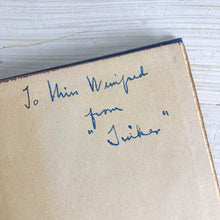 To Miss Winifred
from
"Tinker"